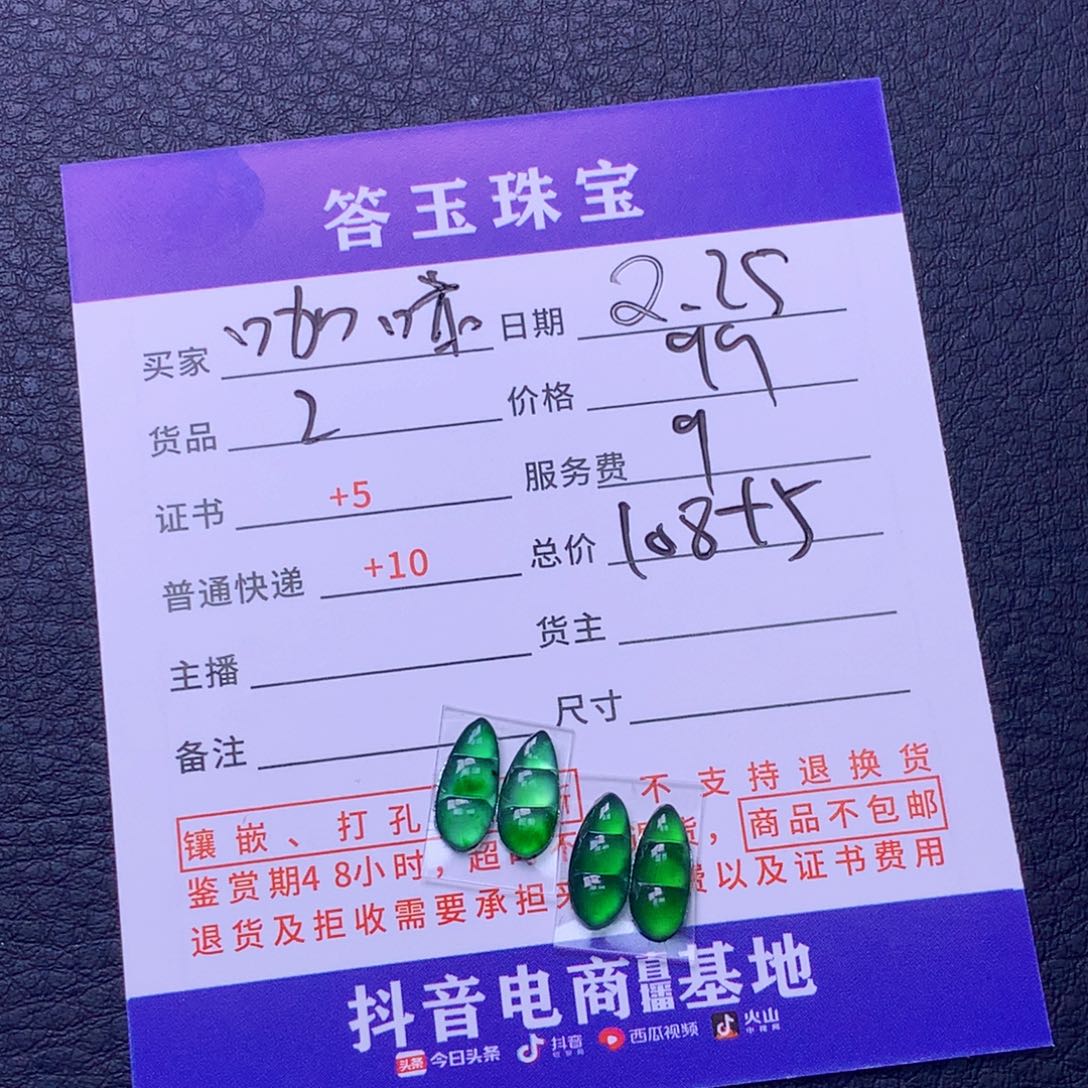 答玉珠宝
买家 咖啡 日期 2.25
货品 2 价格 99
证书 +5 服务费 9
普通快递 +10 总价 108+5
主播 货主
备注 尺寸
镶嵌、打孔 不支持退换货
鉴赏期48小时，超 货，商品不包邮
退货及拒收需要承担 费以及证书费用
抖音电商直播基地
头条 今日头条 抖音 西瓜视频 火山